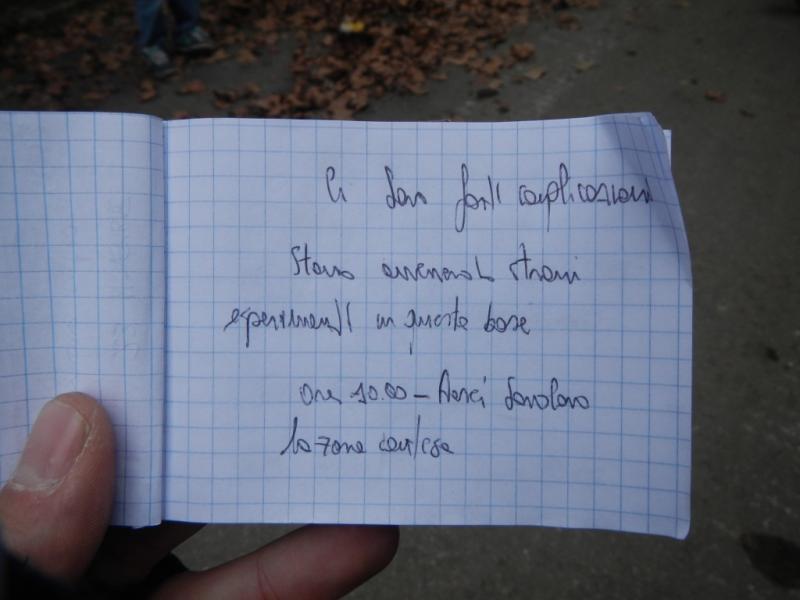 Ci sono forti complicazioni
Stanno avvenendo strani
esperimenti in queste base
Ore 10.00 - Aerei sorvolano
la zona